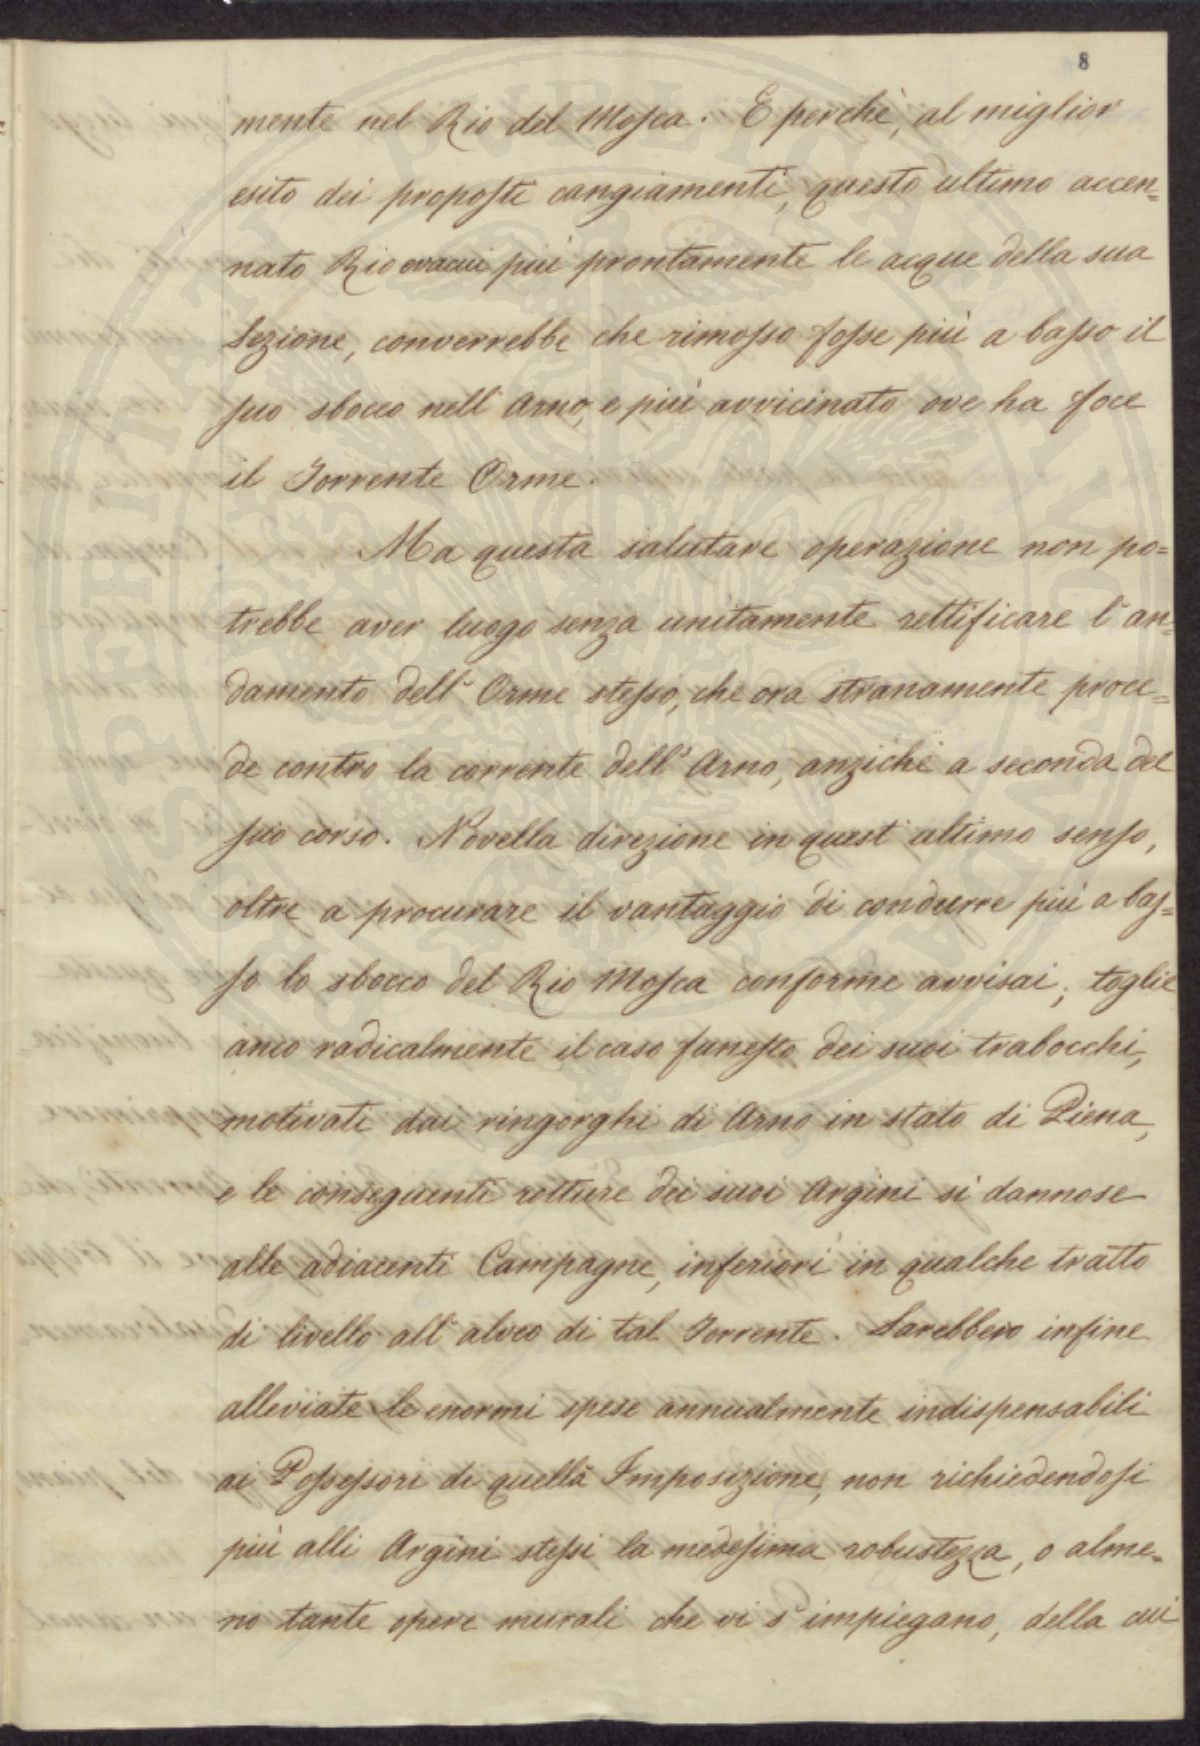 8
mente nel Rio del Mosca. E perchè, al miglior
esito dei proposti cangiamenti, questo ultimo accen=
nato Rio evacui più prontamente le acque della sua
Sezione, converrebbe che rimosso fosse più a basso il
suo sbocco nell'Arno, e più avvicinato ove ha foce
il Torrente Orme.
Ma questa salutare operazione non po=
trebbe aver luogo senza unitamente rettificare l'an=
damento dell'Orme stesso, che ora stranamente proce=
de contro la corrente dell'Arno, anzichè a seconda del
suo corso. Novella direzione in quest'ultimo senso,
oltre a procurare il vantaggio di condurre più a bas=
so lo sbocco del Rio Mosca conforme avvisai, toglie
anco radicalmente il caso funesto dei suoi trabocchi,
motivati dai ringorghi di Arno in stato di Piena,
e le conseguenti rotture dei suoi Argini sì dannose
alle adiacenti Campagne, inferiori in qualche tratto
di livello all'alveo di tal Torrente. Sarebbero infine
alleviate le enormi spese annualmente indispensabili
ai Possessori di quella Imposizione, non richiedendosi
più alli Argini stessi la medesima robustezza, o alme=
no tante opere murali che vi s'impiegano, della cui